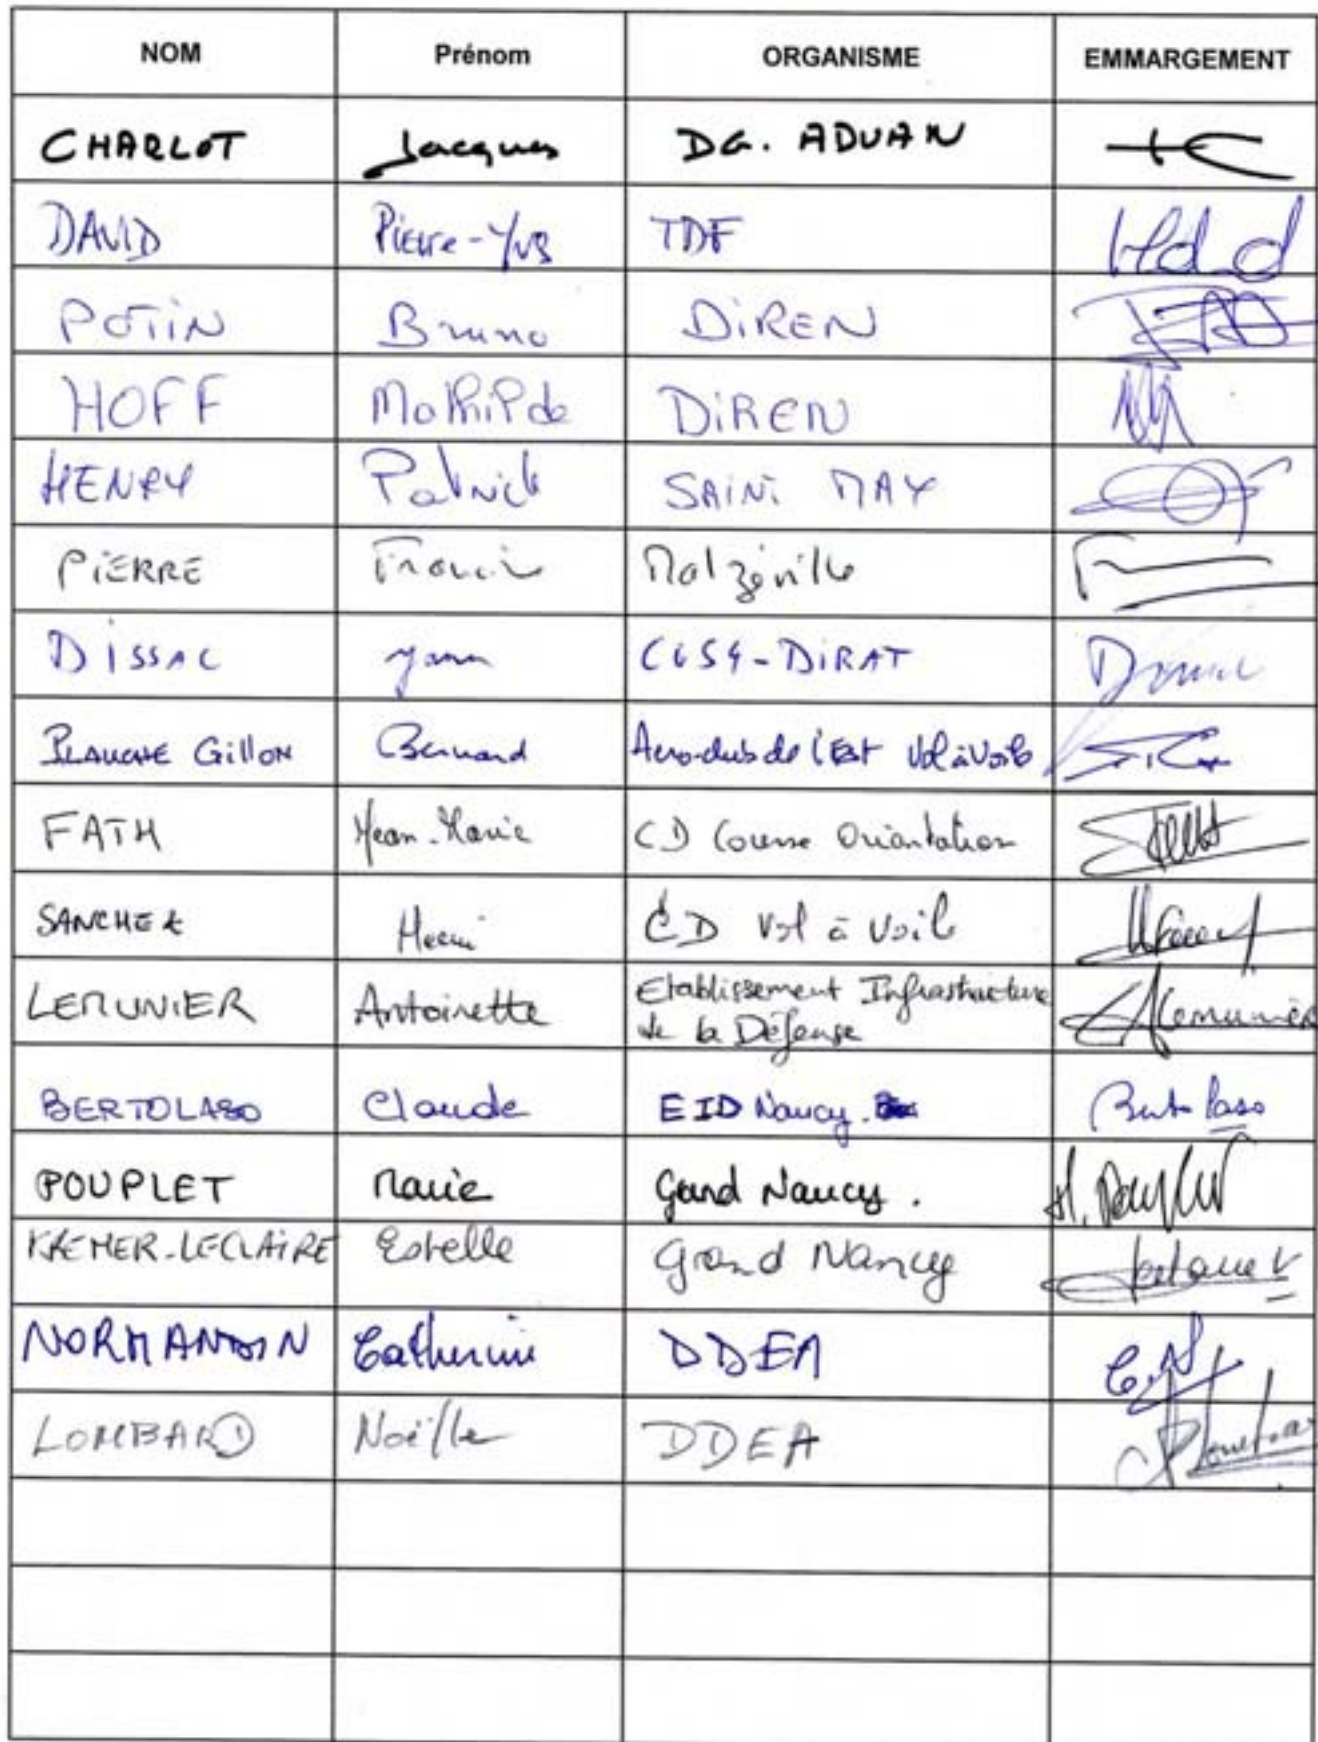 NOM Prénom ORGANISME EMMARGEMENT
CHARLOT Jacques DG. ADUAN
DAVID Pierre-Yves TDF
POTIN Bruno DiREN
HOFF Mathilde DiREN
HENRY Patrick SAINT MAX
PIERRE Francis Malzéville
DISSAC Yann CG54-DIRAT
BLANCHE Gillon Bernard Aero-club de l'Est Vol à Voile
FATH Jean-Marie CD Course Orientation
SANCHEZ Henri CD Vol à Voile
LEMUNIER Antoinette Etablissement Infrastructure
de la Défense Lemunier
BERTOLASO Claude EID Nancy. Bertolaso
POUPLET Marie Grand Nancy.
KAEMER-LECLAIRE Estelle Grand Nancy
NORMANDIN Catherine DDEA C.N
LOMBARD Noëlle DDEA